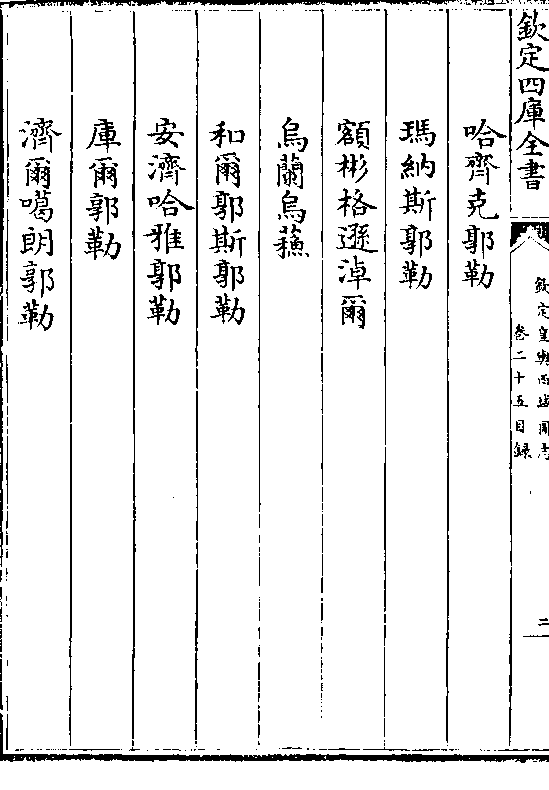 欽定四庫全書
欽定皇輿西域圖志
卷二十五目録
二
哈齊克郭勒
瑪納斯郭勒
額彬格遜淖爾
烏蘭烏蘓
和爾郭斯郭勒
安濟哈雅郭勒
庫爾郭勒
濟爾噶朗郭勒